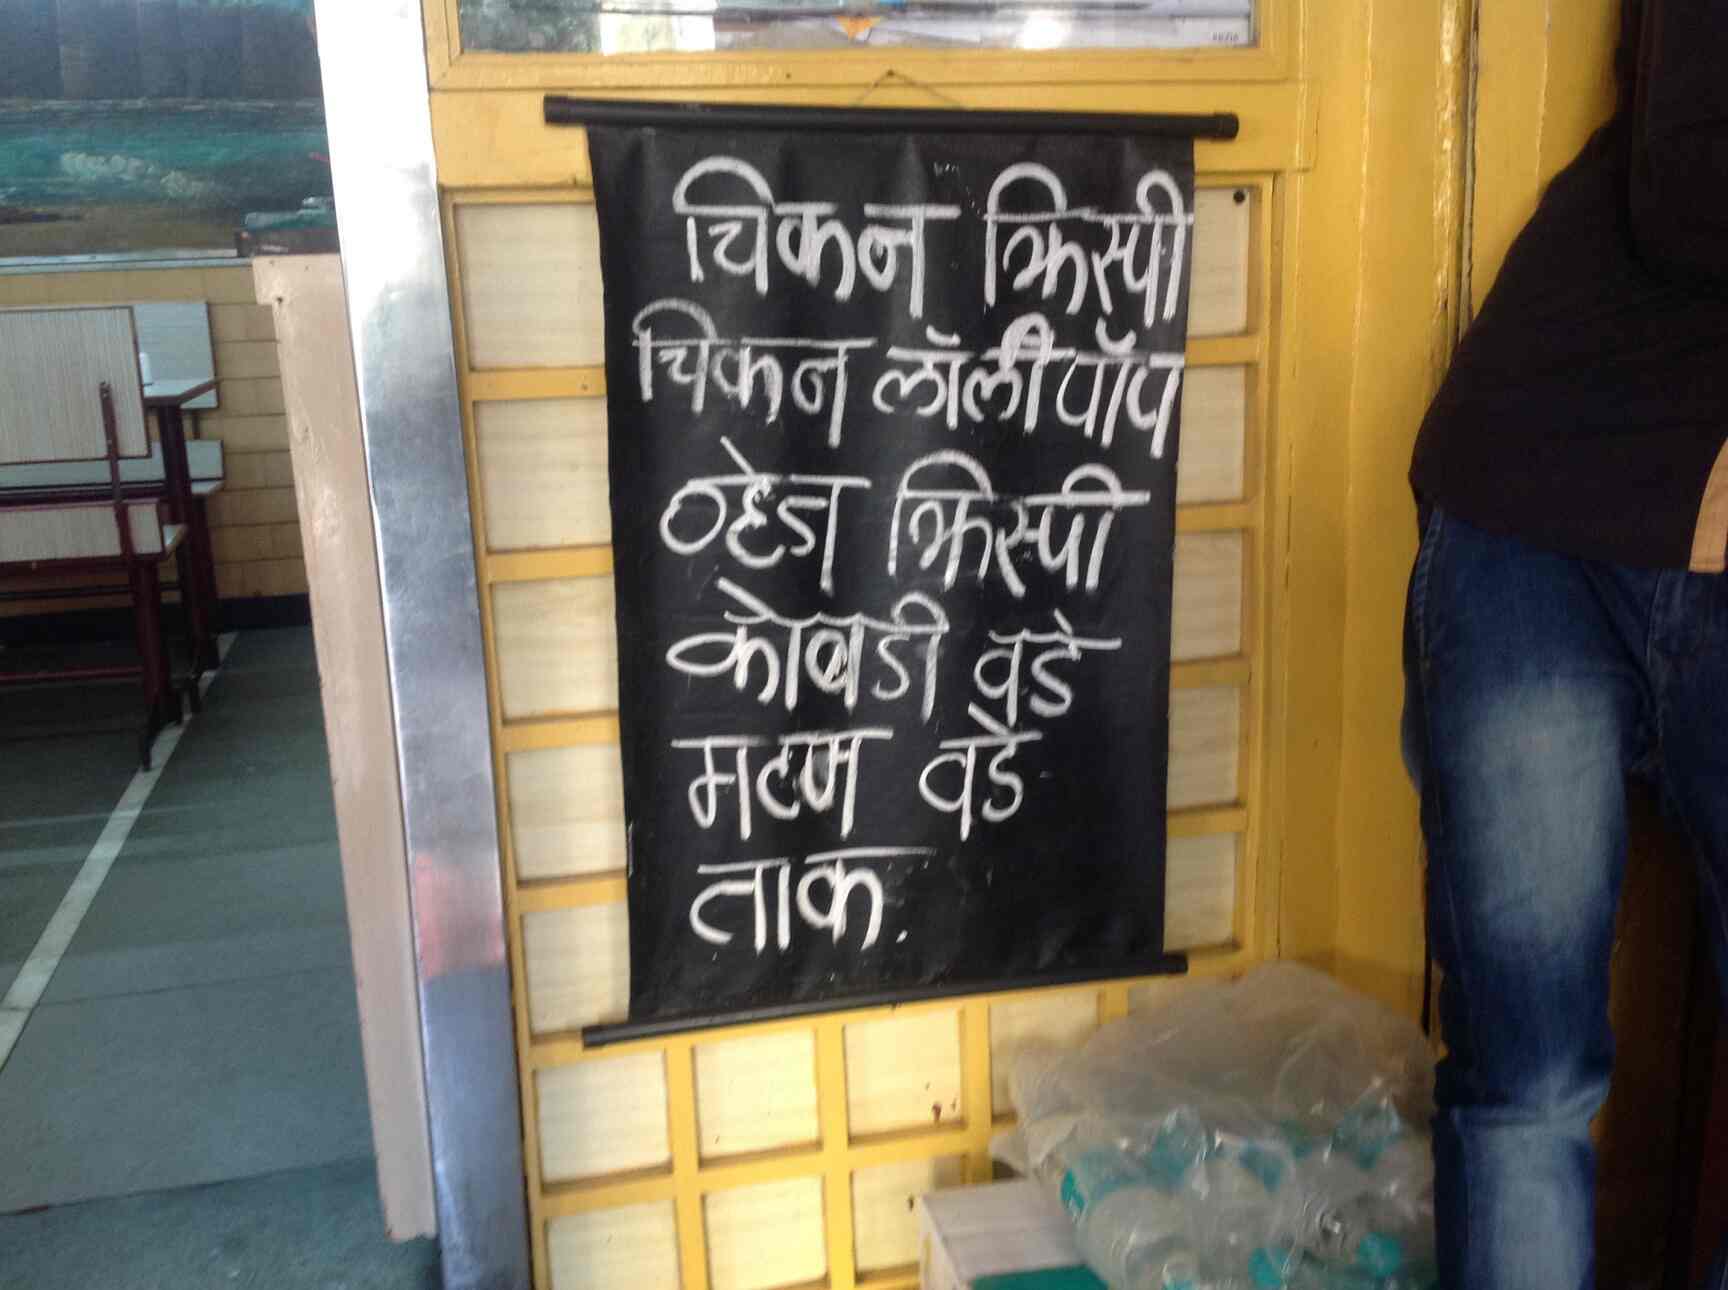 चिकन क्रिस्पी
चिकन लॉलीपॉप
व्हेज क्रिस्पी
कोबडी वडे
मटण वडे
ताक.